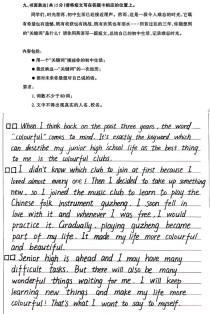 九、书面表达(共15分)请将短文写在答题卡相应的位置上。
同学们,时光荏苒,初中生活
内容包括:
● 用一个“关键词”描述你的初中生活;
● 叙述
●
要求:
1. 词数不少于80词;
2. 文中不得出现真实的人名、校名。
When I think back on the past three years, the word
"colourful" comes to mind. It's exactly the keyword which
can describe my junior high school life as the best thing
to me is the colourful clubs.
I didn't know which club to join at first because I
loved almost every one! Then I decided to take up something
new, so I joined the music club to learn to play the
Chinese folk instrument guzheng. I soon fell in
love with it and whenever I was free, I would
practice it. Gradually, playing guzheng became
part of my life. It made my life more colourful
and beautiful.
Senior high is ahead and I may have many
difficult tasks. But there will also be many
wonderful things waiting for me. I will keep
learning new things and make my life more
colourful! That's what I want to say to myself.